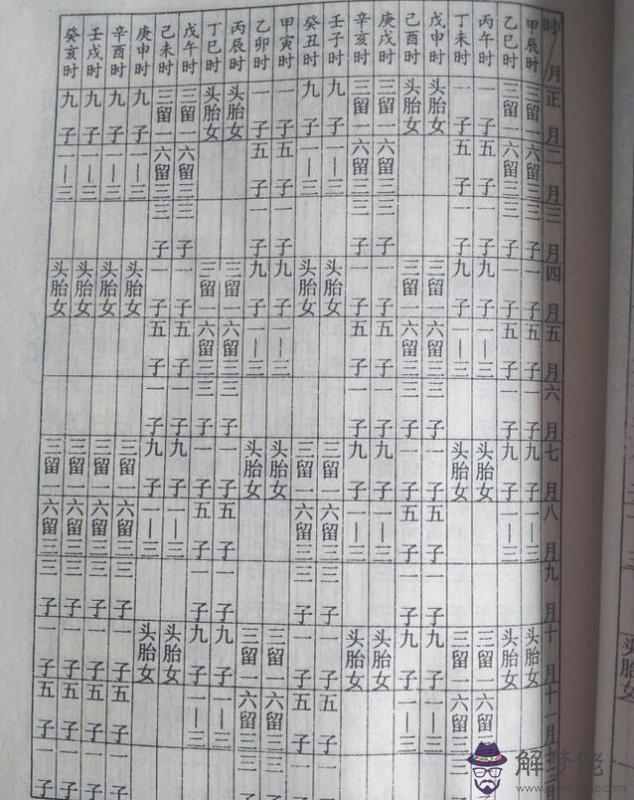 时 月 正月 二月 三月 四月 五月 六月 七月 八月 九月 十月 十一月
甲辰时 三留一 六留三 三子 一子 五子 一子 九子 一—三 头胎女
乙巳时 三留一 六留三 三子 一子 五子 一子 九子 一—三 头胎女
丙午时 一子 五子 一子 九子 一—三 头胎女 三留一 六留三 三
丁未时 一子 五子 一子 九子 一—三 头胎女 三留一 六留三 三
戊申时 头胎女 三留一 六留三 三子 一子 五子 一子 九子 一—三
己酉时 头胎女 三留一 六留三 三子 一子 五子 一子 九子 一—三
庚戌时 三留一 六留三 三子 一子 五子 一子 九子 一—三 头胎女
辛亥时 三留一 六留三 三子 一子 五子 一子 九子 一—三 头胎女
壬子时 九子 一—三 头胎女 三留一 六留三 三子 一子 五子 一子
癸丑时 九子 一—三 头胎女 三留一 六留三 三子 一子 五子 一子
甲寅时 一子 五子 一子 九子 一—三 头胎女 三留一 六留三 三
乙卯时 一子 五子 一子 九子 一—三 头胎女 三留一 六留三 三
丙辰时 头胎女 三留一 六留三 三子 一子 五子 一子 九子 一—三
丁巳时 头胎女 三留一 六留三 三子 一子 五子 一子 九子 一—三
戊午时 三留一 六留三 三子 一子 五子 一子 九子 一—三 头胎女
己未时 三留一 六留三 三子 一子 五子 一子 九子 一—三 头胎女
庚申时 九子 一—三 头胎女 三留一 六留三 三子 一子 五子 一子
辛酉时 九子 一—三 头胎女 三留一 六留三 三子 一子 五子 一子
壬戌时 九子 一—三 头胎女 三留一 六留三 三子 一子 五子 一子
癸亥时 九子 一—三 头胎女 三留一 六留三 三子 一子 五子 一子
头胎女
解梦佬